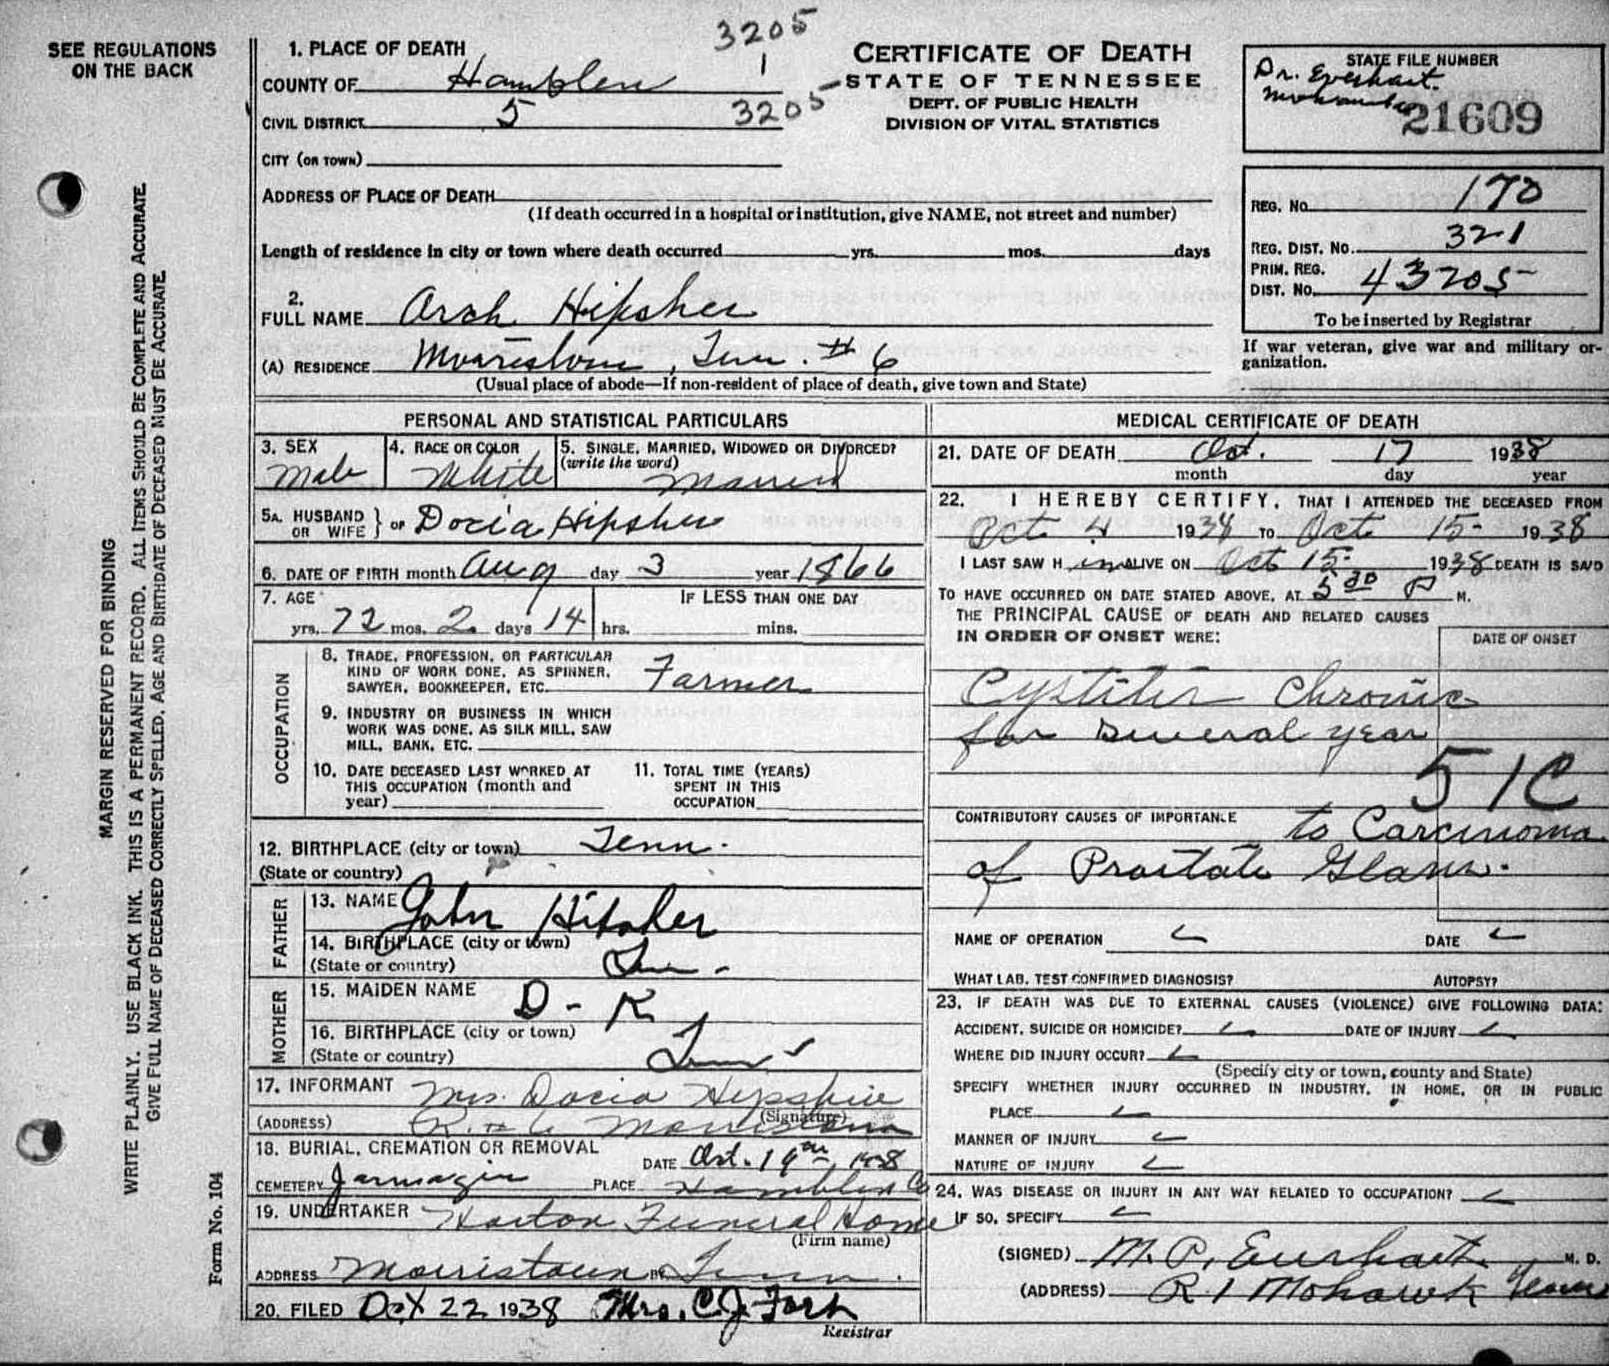 SEE REGULATIONS
ON THE BACK
MARGIN RESERVED FOR BINDING
WRITE PLAINLY. USE BLACK INK. THIS IS A PERMANENT RECORD. ALL ITEMS SHOULD BE COMPLETE AND ACCURATE.
GIVE FULL NAME OF DECEASED CORRECTLY SPELLED. AGE AND BIRTHDATE OF DECEASED MUST BE ACCURATE.
Form No. 104
3205
1
3205
1. PLACE OF DEATH
COUNTY OF Hamblen
CIVIL DISTRICT 5
CITY (OR TOWN)
ADDRESS OF PLACE OF DEATH
(If death occurred in a hospital or institution, give NAME, not street and number)
Length of residence in city or town where death occurred yrs. mos. days
CERTIFICATE OF DEATH
STATE OF TENNESSEE
DEPT. OF PUBLIC HEALTH
DIVISION OF VITAL STATISTICS
STATE FILE NUMBER
Dr. Everhart.
21609
REG. NO. 170
REG. DIST. NO. 321
PRIM. REG.
DIST. NO. 43205
To be inserted by Registrar
If war veteran, give war and military or-
ganization.
2.
FULL NAME Arch Hipsher
(A) RESIDENCE Morristown, Tenn. # 6
(Usual place of abode—If non-resident of place of death, give town and State)
PERSONAL AND STATISTICAL PARTICULARS
3. SEX
Male
4. RACE OR COLOR
White
5. SINGLE, MARRIED, WIDOWED OR DIVORCED?
(write the word)
Married
5A. HUSBAND
OR WIFE } OF Docia Hipsher
6. DATE OF BIRTH month Aug day 3 year 1866
7. AGE
yrs. 72 mos. 2 days 14
IF LESS THAN ONE DAY
hrs. mins.
OCCUPATION
8. TRADE, PROFESSION, OR PARTICULAR
KIND OF WORK DONE, AS SPINNER,
SAWYER, BOOKKEEPER, ETC. Farmer
9. INDUSTRY OR BUSINESS IN WHICH
WORK WAS DONE, AS SILK MILL, SAW
MILL, BANK, ETC.
10. DATE DECEASED LAST WORKED AT
THIS OCCUPATION (month and
year)
11. TOTAL TIME (YEARS)
SPENT IN THIS
OCCUPATION
12. BIRTHPLACE (city or town) Tenn.
(State or country)
FATHER
13. NAME John Hipsher
14. BIRTHPLACE (city or town)
(State or country) Tenn.
MOTHER
15. MAIDEN NAME D - K
16. BIRTHPLACE (city or town)
(State or country) Tenn
17. INFORMANT Mrs. Docia Hipshire
(Signature)
(ADDRESS) R. # 6 Morristown
18. BURIAL, CREMATION OR REMOVAL
DATE Oct. 19th, 1938
CEMETERY Jarnagin PLACE Hamblen Co
19. UNDERTAKER Horton Funeral Home
(Firm name)
ADDRESS Morristown Tenn.
20. FILED Oct 22 1938 Mrs. C. J. Fort
Registrar
MEDICAL CERTIFICATE OF DEATH
21. DATE OF DEATH Oct. 17 1938
month day year
22. I HEREBY CERTIFY, THAT I ATTENDED THE DECEASED FROM
Oct 4 1938 TO Oct 15- 1938
I LAST SAW H im ALIVE ON Oct 15- 1938 DEATH IS SAID
TO HAVE OCCURRED ON DATE STATED ABOVE, AT 5 30 P M.
THE PRINCIPAL CAUSE OF DEATH AND RELATED CAUSES
IN ORDER OF ONSET WERE:
DATE OF ONSET
Cystitis Chronic
for several year
51C
CONTRIBUTORY CAUSES OF IMPORTANCE to Carcinoma
of Prostate Gland.
NAME OF OPERATION DATE
WHAT LAB. TEST CONFIRMED DIAGNOSIS? AUTOPSY?
23. IF DEATH WAS DUE TO EXTERNAL CAUSES (VIOLENCE) GIVE FOLLOWING DATA:
ACCIDENT, SUICIDE OR HOMICIDE? DATE OF INJURY
WHERE DID INJURY OCCUR?
(Specify city or town, county and State)
SPECIFY WHETHER INJURY OCCURRED IN INDUSTRY, IN HOME, OR IN PUBLIC
PLACE
MANNER OF INJURY
NATURE OF INJURY
24. WAS DISEASE OR INJURY IN ANY WAY RELATED TO OCCUPATION?
IF SO, SPECIFY
(SIGNED) M. P. Everhart M. D.
(ADDRESS) R. 1 Mohawk Tenn